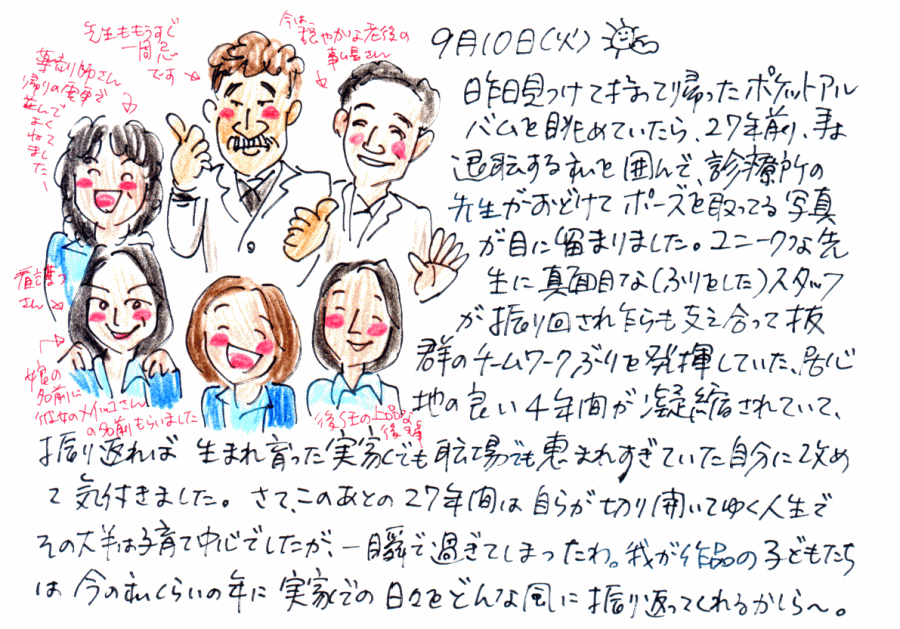 9月10日(火)
昨日見つけて持って帰ったポケットアル
バムを眺めていたら、27年前、
退転する私を囲んで、診療所の
先生がおどけてポーズを取ってる写真
が目に留まりました。ユニークな先
生に真面目な(ふりをした)スタッフ
が振り回され乍らも支え合って抜
群のチームワークぶりを発揮していた、居心
地の良い4年間が凝縮されていて、
振り返れば生まれ育った実家でも職場でも恵まれすぎていた自分に改め
て気付きました。さて、このあとの27年間は自らが切り開いてゆく人生で
その大半は子育て中心でしたが、一瞬で過ぎてしまったわ。我が作品の子どもたち
は今の私くらいの年に実家での日々をどんな風に振り返ってくれるかしら〜。
先生ももうすぐ
一周忌
です
今は、
穏やかな老後の
事ム長さん
薬剤師さん
帰りの電車で
並んで
よく
ねて
ました〜
看護師
さん
娘の
名前に
彼女のメイッコさん
の名前もらいました
後輩